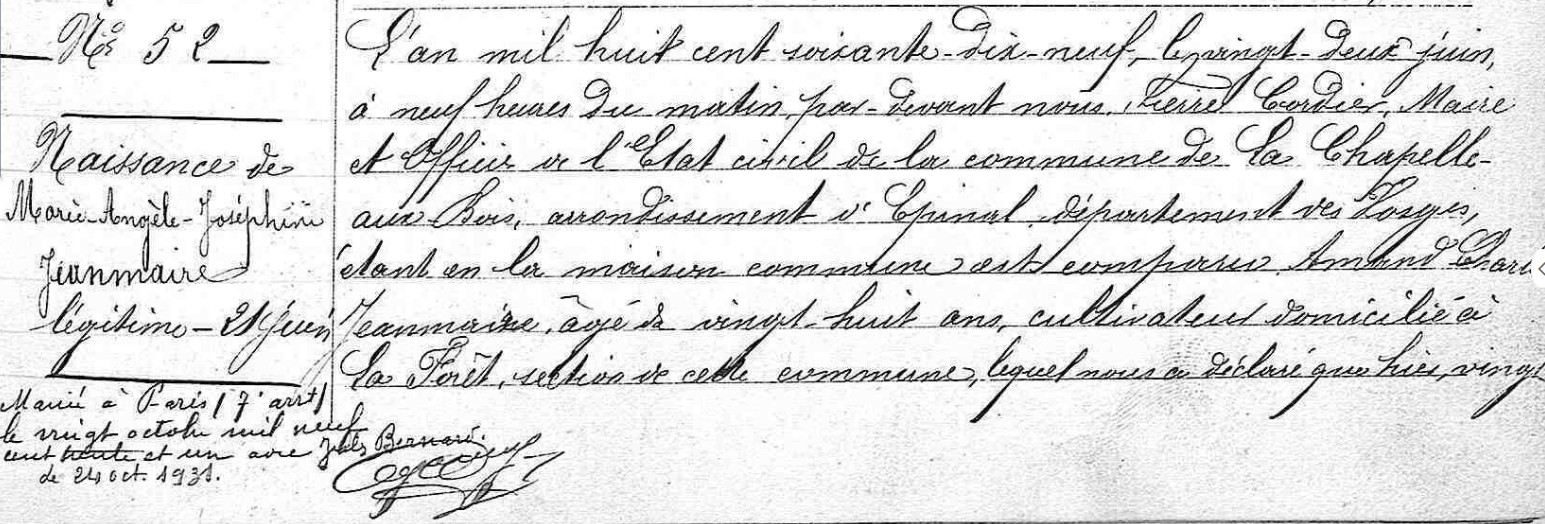 N° 52
Naissance de
Marie-Angèle-Joséphine
Jeanmaire
légitime - 21 Juin
Marié à Paris (7e arrt)
le vingt octobre mil neuf
cent trente et un avec Jules Bernard.
de 24 oct. 1931.
L'an mil huit cent soixante-dix-neuf, le vingt-deux juin,
à neuf heures du matin, par-devant nous, Pierre Cordier, Maire
et Officier de l'Etat civil de la commune de La Chapelle-
aux-Bois, arrondissement d'Epinal, département des Vosges,
étant en la maison commune est comparu Amand
Jeanmaire, âgé de vingt-huit ans, cultivateur domicilié à
La Forêt, section de cette commune, lequel nous a déclaré que hier, vingt